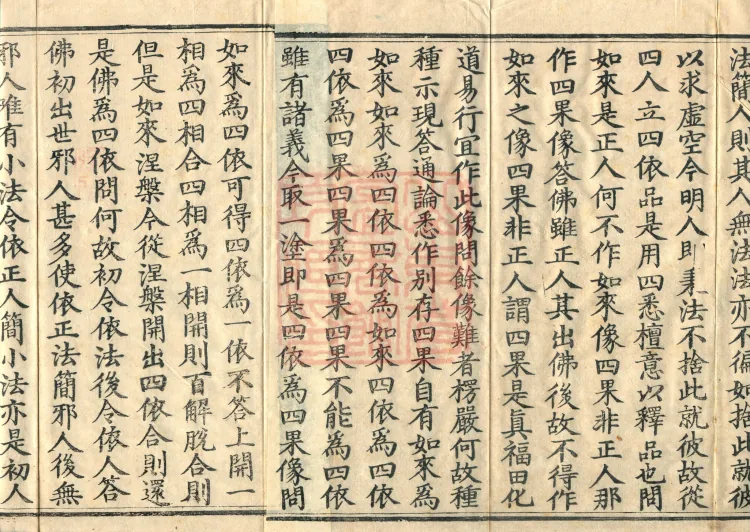 法簡人則其人無法法亦不徧如捨此就彼
以求虛空今明人則秉法不捨此就彼故從
四人立四依品是用四悉檀意以釋品也問
如來是正人何不作如來像四果非正人那
作四果像答佛雖正人其出佛後故不得作
如來之像四果非正人謂四果是眞福田化
道易行宜作此像問餘像難者楞嚴何故種
種示現答通論悉作別存四果自有如來爲
如來如來爲四依四依爲如來四依爲四果
四依爲四果四果爲四果四果不能爲四依
雖有諸義今取一塗即是四依爲四果像問
如來爲四依可得四依爲一依不答上開一
相爲四相合四相爲一相開則百解脫合則
但是如來涅槃今從涅槃開出四依合則還
是佛爲四依問何故初令依法後令依人答
佛初出世邪人甚多使依正法簡邪人後無
邪人唯有小法令依正人簡小法亦是初人